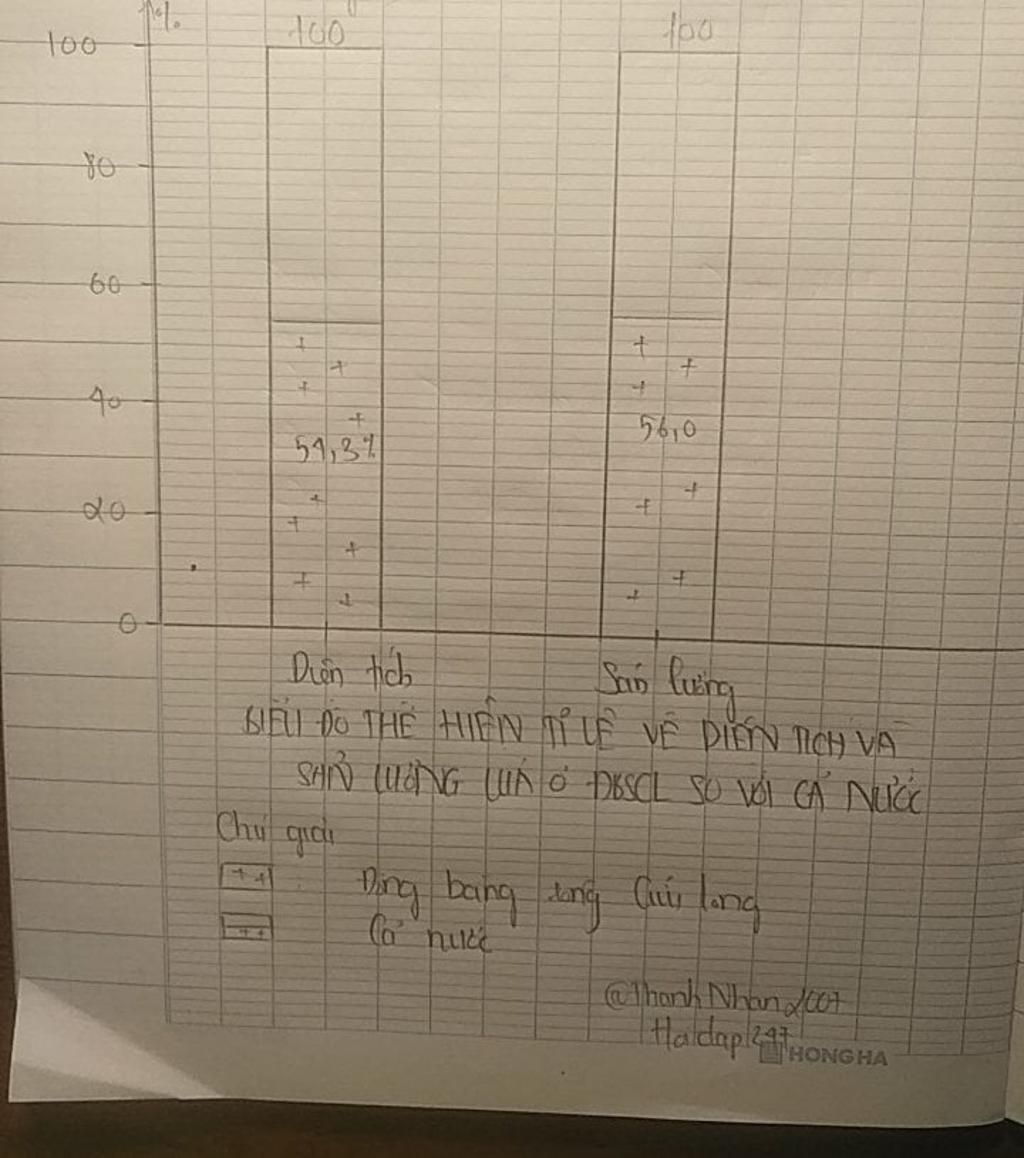 %
100 100 100
80
60
40
54,3% 56,0
20
0
Diện tích Sản lượng
BIỂU ĐỒ THỂ HIỆN TỈ LỆ VỀ DIỆN TÍCH VÀ
SẢN LƯỢNG LÚA Ở ĐBSCL SO VỚI CẢ NƯỚC
Chú giải
Đồng bằng sông Cửu long
Cả nước
@ThanhNhan2007
Hoidap247
HONGHA